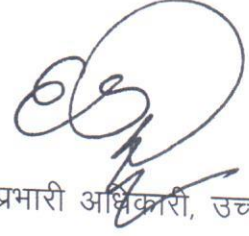 प्रभारी अधिकारी, उच्च